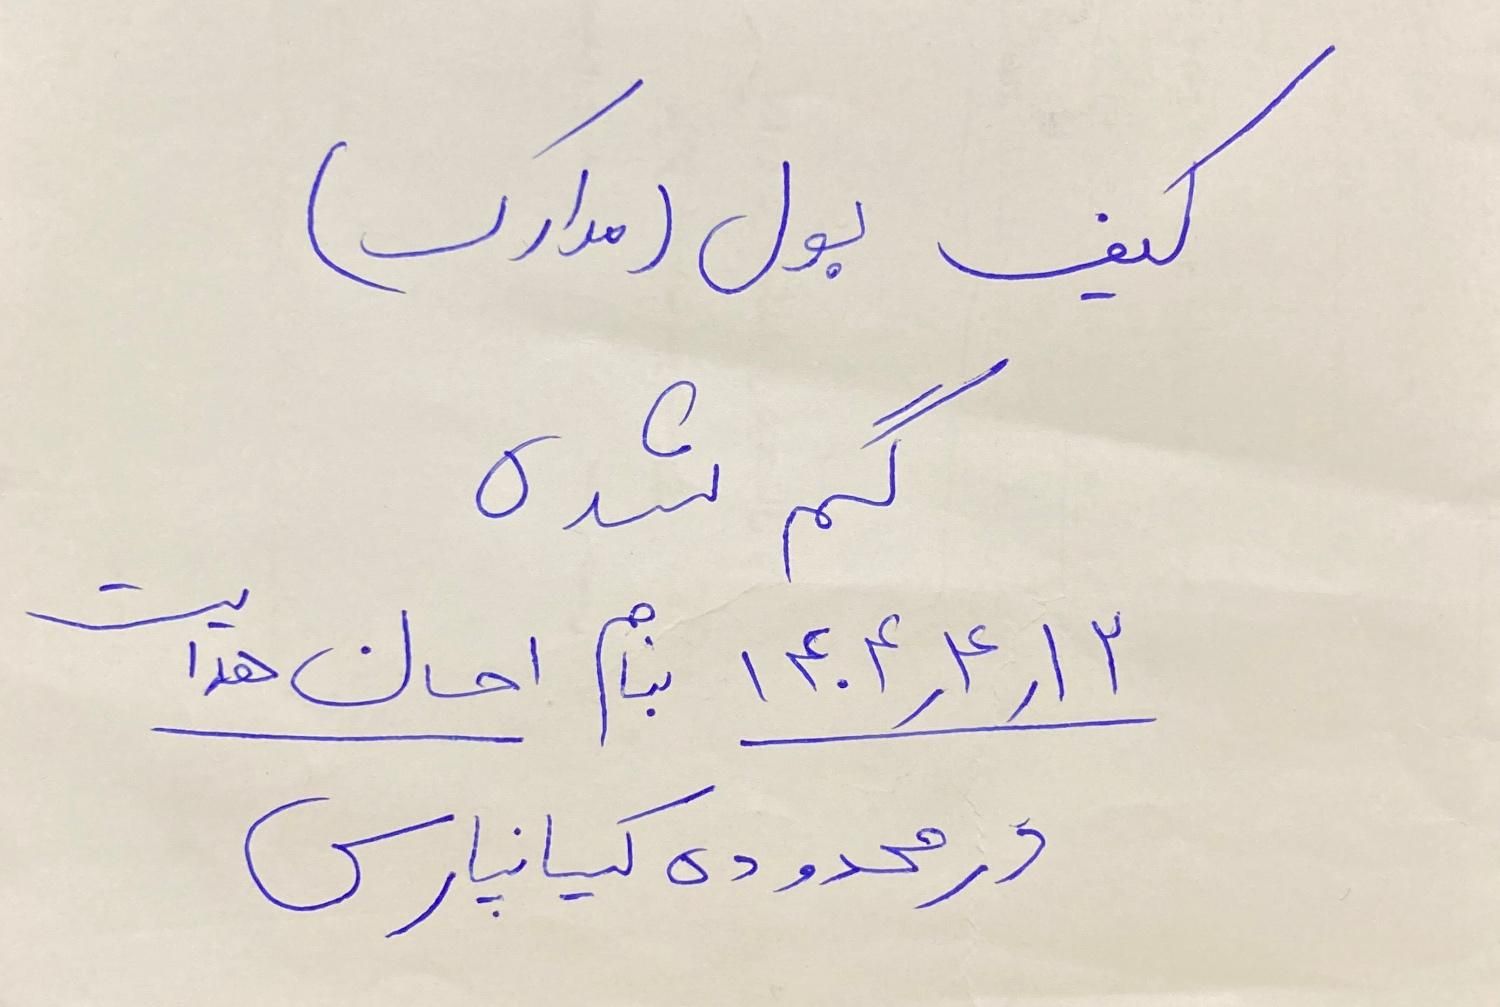 کیف پول (مدارک)
گم شده
۱۴۰۴٫۴٫۱۲ بنام احسان هدایت
در محدوده کیانپارس